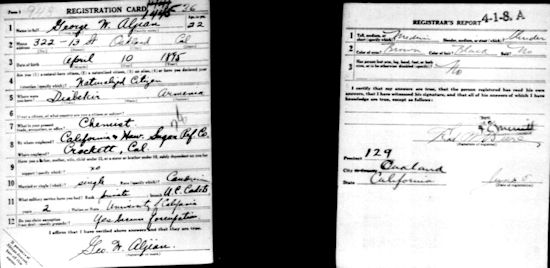 REGISTRATION CARD
36
1 Name in full George W. Aljian 22
2 Home address 322 - 13 St Oakland Cal
3 Date of birth April 10 1895
4 Are you (1) a natural-born citizen, (2) a naturalized citizen, (3) an alien, (4) or have you declared your intention (specify which)? Naturalized Citizen
5 Where were you born? Diabekir Armenia
6 If not a citizen, of what country are you a citizen or subject?
7 What is your present trade, occupation, or office? Chemist
8 By whom employed? California & Haw. Sugar Ref Co.
Where employed? Crockett, Cal.
9 Have you a father, mother, wife, child under 12, or a sister or brother under 12, solely dependent on you for support (specify which)? no
10 Married or single (which)? single Race (specify which)? Caucasian
11 What military service have you had? Rank private branch U.C. Cadets
years 2 Nation or State University of California
12 Do you claim exemption from draft (specify grounds)? Yes
I affirm that I have verified above answers and that they are true.
Geo. W. Aljian.
REGISTRAR'S REPORT 4-1-8. A
1 Tall, medium, or short (specify which)? Medium Slender, medium, or stout (which)? Slender
2 Color of eyes? Brown Color of hair? Black Bald? No
3 Has person lost arm, leg, hand, foot, or both eyes, or is he otherwise disabled (specify)? No
I certify that my answers are true, that the person registered has read his own answers, that I have witnessed his signature, and that all of his answers of which I have knowledge are true, except as follows:
Precinct 129
City or County Oakland
State California June 5